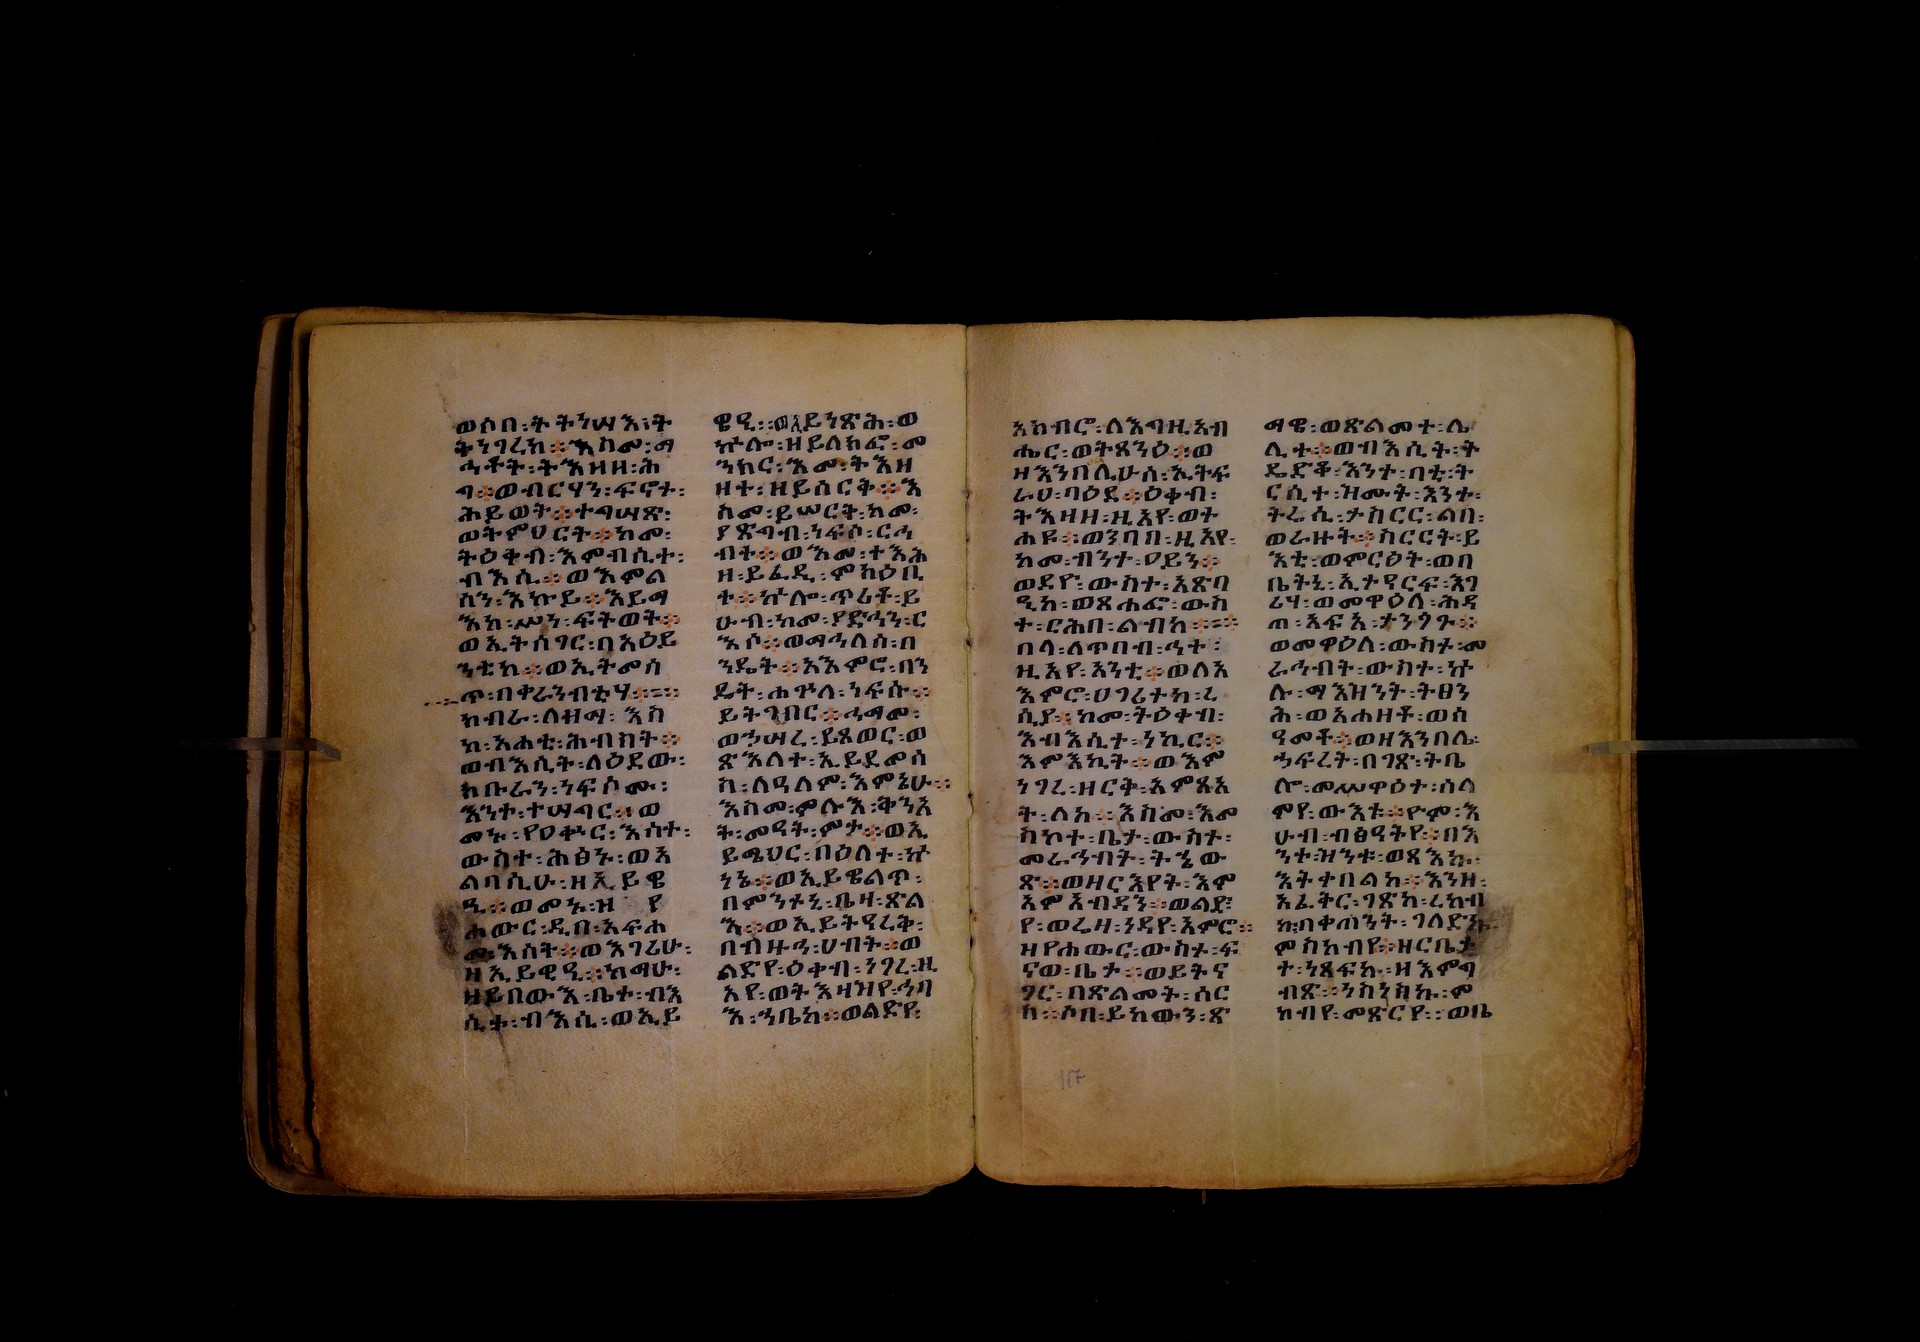 ወሶበ፡ትትነሣእ፡ት
ትነገረከ፨እስመ፡ማ
ኅቶት፡ትእዛዘ፡ሕ
ግ፨ወብርሃን፡ፍኖተ፡
ሕይወት፨ተግሣጽ፡
ወትምህርት፨ከመ፡
ትዕቀብ፡እምብሲተ፡
ብእሲ፨ወእምል
ሳን፡እኩይ፨ኢይማ
እከ፡ሥነ፡ፍትወት፨
ወኢትሰገር፡በአዕይ
ንቲከ፨ወኢትመሰ
ጥ፡በቀራንብቲሃ፨
ክብራ፡ለዘማ፡እስ
ከ፡አሐቲ፡ሕብስት፨
ወብእሲት፡ለዕደው፡
ክቡራን፡ነፍሶሙ፡
እንተ፡ተሣግር፨ወ
መኑ፡የዐቍር፡እሳተ፡
ውስተ፡ሕፅኑ፡ወአ
ልባሲሁ፡ዘኢይዌ
ዒ፨ወመኑ፡ዝ የ
ሐውር፡ዲበ፡አፍሐ
መ፡እሳት፨ወእገሪሁ፡
ዘኢይዊዒ፨ከማሁ፡
ዘይበውእ፡ቤተ፡ብእ
ሲቱ፡ብእሲ፡ወኢይ
ዌዒ፨ወኢይነጽሕ፡ወ
ኵሎ፡ዘይለክፎ፡መ
ንክር፡እመ፡ትእዘ
ዘተ፡ዘይሰርቅ፨እ
ስመ፡ይሠርቅ፡ከመ፡
ያጽግብ፡ነፍሶ፡ርኅ
ብት፨ወእመ፡ተእሕ
ዘ፡ይፈዲ፡ምክዕቢ
ተ፨ኵሎ፡ጥሪቶ፡ይ
ሁብ፡ከመ፡ያድኅን፡ር
እሶ፨ወማኅለሰ፡በ
ንዴት፨አእምሮ፡በን
ዴት፡ሐጕለ፡ነፍሱ፨
ይትገብር፨ሓማመ፡
ወኃሣረ፡ይጸወር፡ወ
ጽእለት፡ኢይደመሰ
ስ፡ለዓለም፡እምኔሁ፨
እስመ፡ምሉእ፡ቅንአ
ት፡መዓት፡ምታ፨ወኢ
ይሜህር፡በዕለተ፡ኵ
ነኔ፨ወኢይዌልጥ፡
በምንትኒ፡ቤዛ፡ጽል
እ፨ወኢይትዓረቅ፡
በብዙኅ፡ሀብት፨ወ
ልድየ፡ዕቀብ፡ነገረ፡ዚ
አየ፡ወትእዛዝየ፡ኅባ
እ፡ኀቤከ፨ወልድየ፡
አክብሮ፡ለእግዚአብ
ሔር፡ወትጸንዕ፨ወ
ዘእንበሌሁሰ፡ኢትፍ
ራህ፡ባዕደ፨ዕቀብ፡
ትእዛዘ፡ዚአየ፡ወት
ሐዩ፨ወንባበ፡ዚአየ፡
ከመ፡ብንተ፡ዐይን፨
ወደዮ፡ውስተ፡አጽባ
ዒከ፡ወጸሐፎ፡ውስ
ተ፡ርሕበ፡ልብከ፨
በላ፡ለጥበብ፡ኅት፡
ዚአየ፡አንቲ፨ወለአ
እምሮ፡ሀገሪተከ፡ረ
ሲያ፨ከመ፡ትዕቀብ፡
እብእሲተ፡ነኪር፨
እምእኪት፨ወእም
ነገረ፡ዘርቅ፡እምጸአ
ት፡ለከ፨እስመ፡እመ
ስኮተ፡ቤታ፡ውስተ፡
መራኅብት፡ትሄው
ጽ፨ወዘርእየት፡እም
እምአብዳን፨ወልደ፡
የ፡ወሬዛ፡ነዳየ፡እምሮ፨
ዘየሐውር፡ውስተ፡ፍ
ናወ፡ቤታ፨ወይትና
ገር፡በጽልመት፡ሰር
ክ፨ሶበ፡ይከውን፡ጽ
ማዌ፡ወጽልመተ፡ሌ
ሊተ፨ወብእሲት፡ት
ዴድቆ፡እንተ፡በቲ፡ት
ርሲተ፡ዝሙት፡እንተ፡
ትሬሲ፡ታስርር፡ልበ፡
ወራዙት፨ስርርት፡ይ
እቲ፡ወምርዕት፡ወበ
ቤትኒ፡ኢተዓርፍ፡እገ
ሪሃ፡ወመዋዕለ፡ሕዳ
ጠ፡አፍአ፡ታንጎጉ፨
ወመዋዕለ፡ውስተ፡መ
ራኅብት፡ውስተ፡ኵ
ሉ፡ማእዝንት፡ትፀን
ሕ፡ወአሐዘቶ፡ወሰ
ዓመቶ፨ወዘእንበለ፡
ኀፍረት፡በገጽ፡ትቤ
ሎ፡መሥዋዕተ፡ሰላ
ምየ፡ውእቱ፨ዮም፡እ
ሁብ፡ብፅዓትየ፨በእ
ንተ፡ዝንቱ፡ወጻእኩ፡
እትቀበልከ፨እንዘ፡
አፈትር፡ገጽከ፡ረከብ
ኩ፡በቀጠንት፡ገለድኩ፡
ምስካብየ፨ዘርቤታ
ተ፡ነጸፍኩ፡ዘእምግ
ብጽ፨ነስነስኩ፡ም
ስካብየ፡መጽርየ፨ወቤ